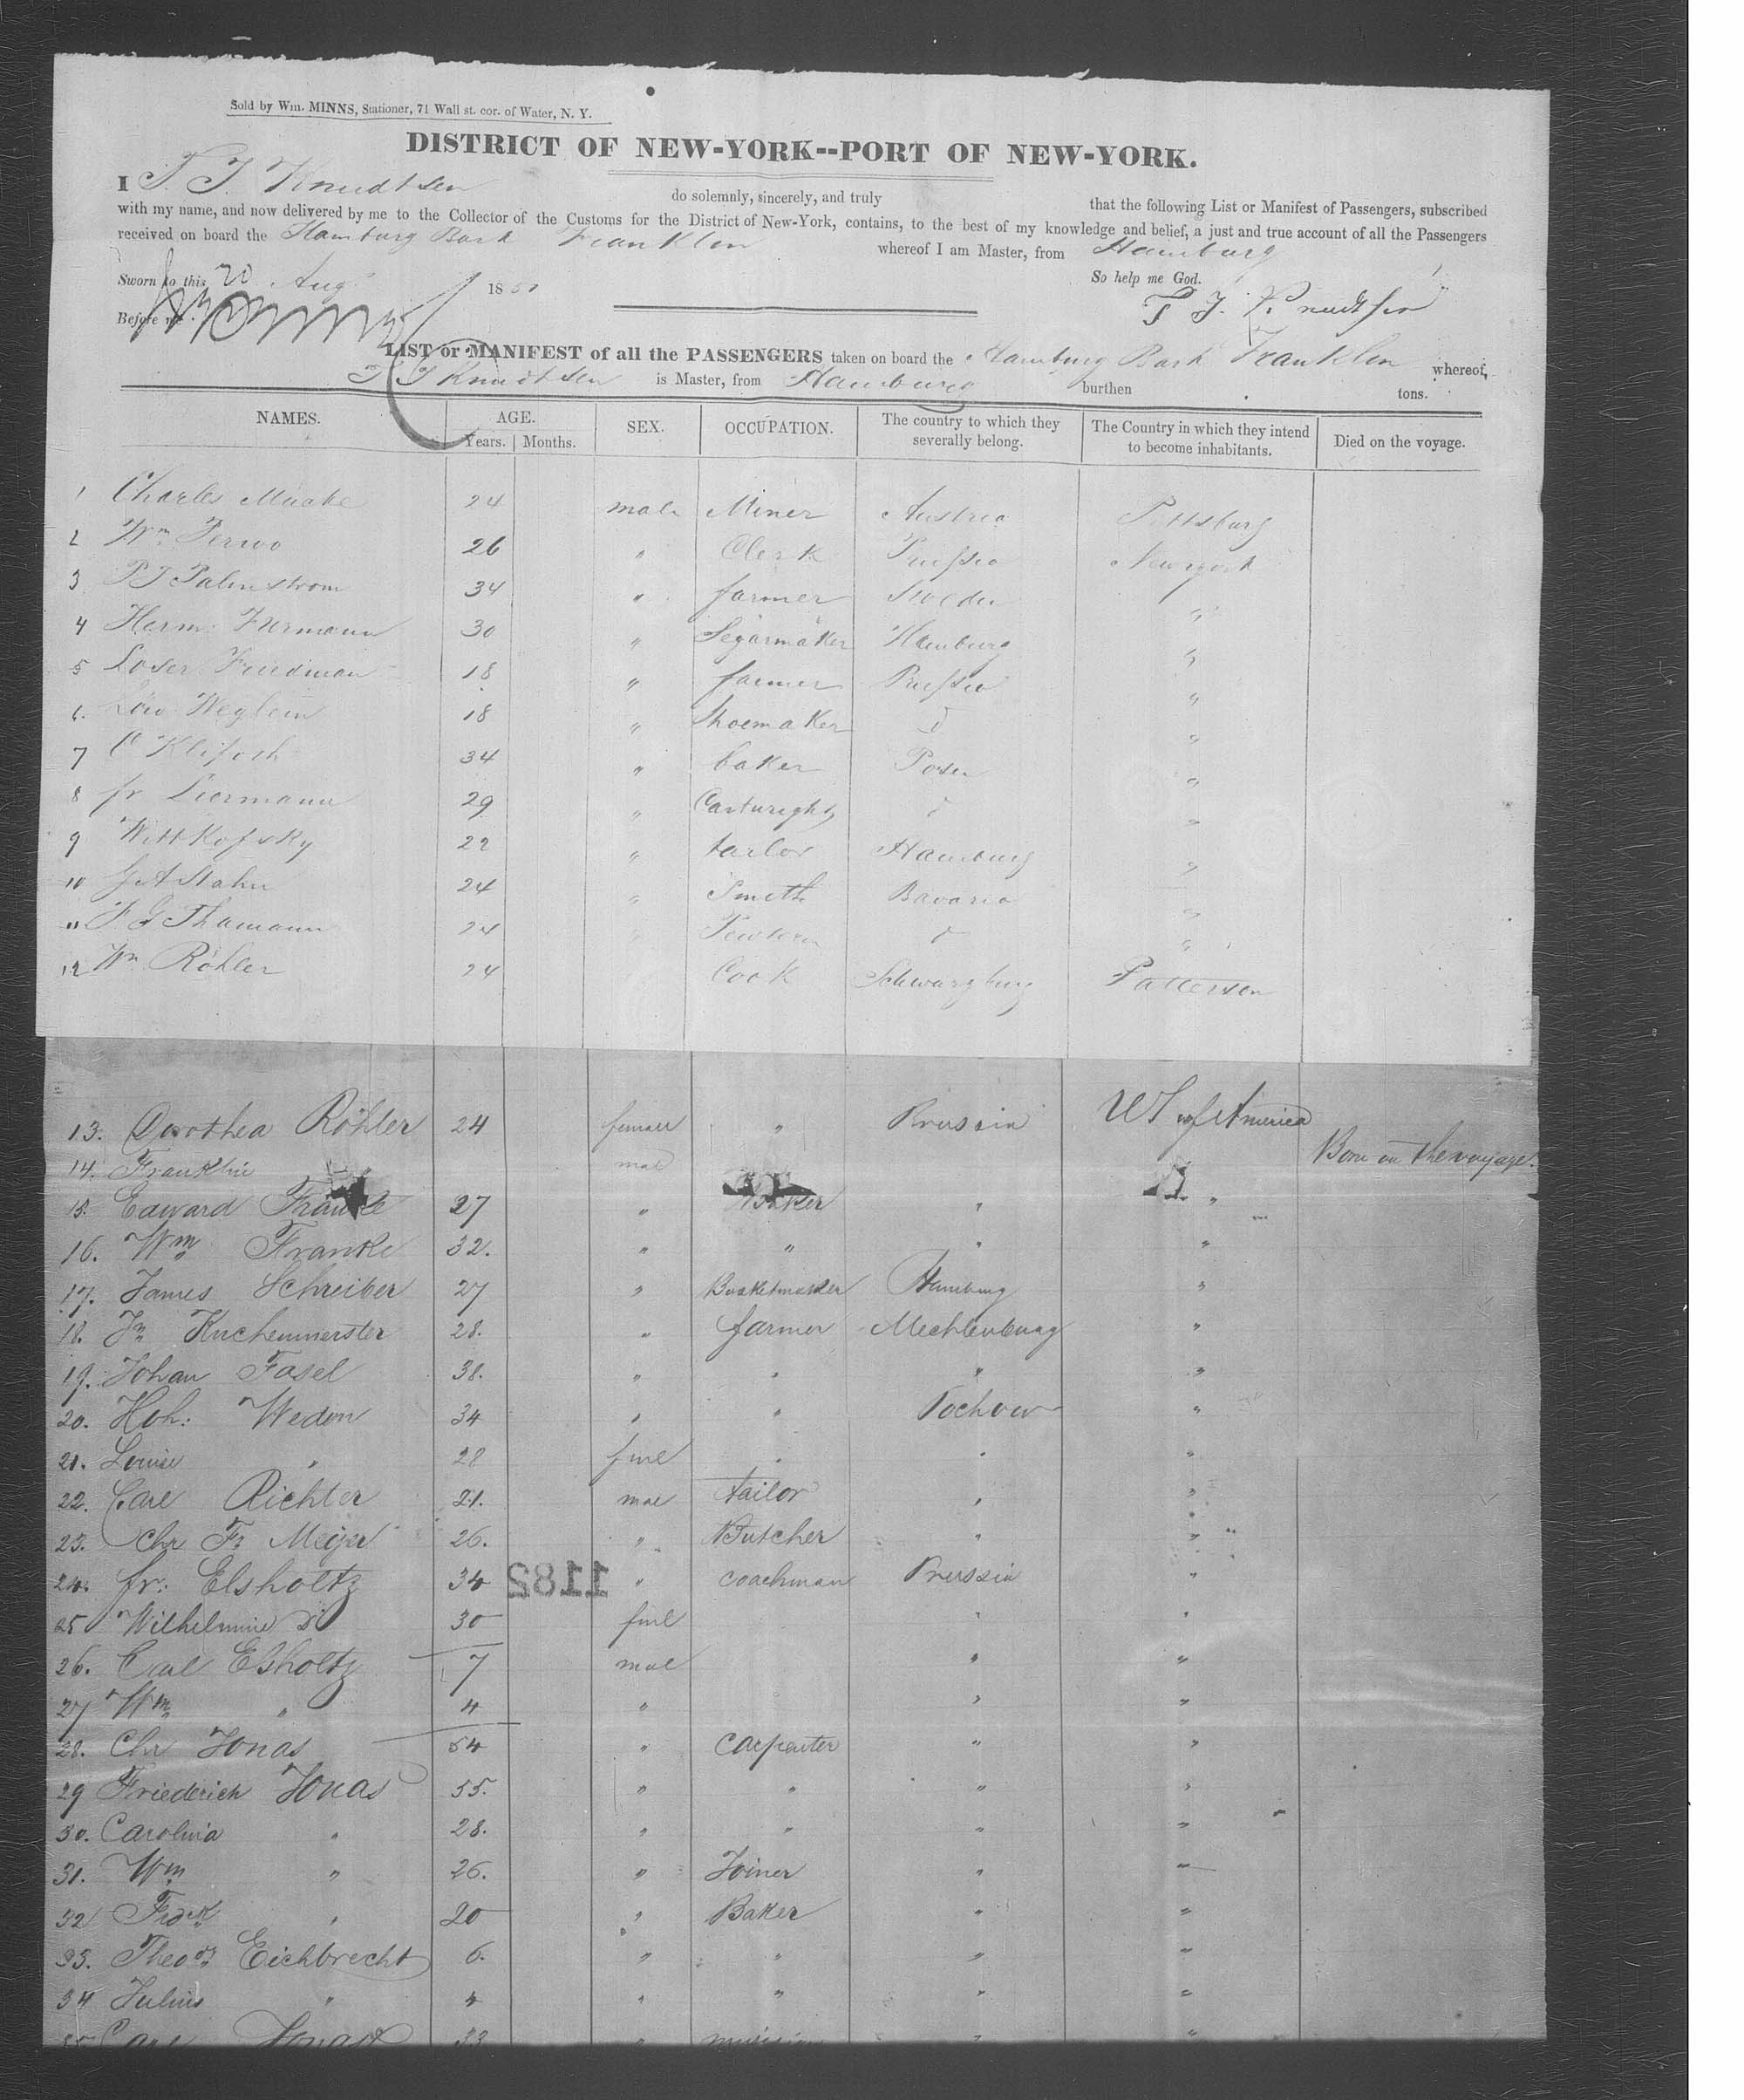 Sold by Wm. MINNS, Stationer, 71 Wall st. cor. of Water, N. Y.
DISTRICT OF NEW-YORK--PORT OF NEW-YORK.
I T. J. Knudtsen do solemnly, sincerely, and truly that the following List or Manifest of Passengers, subscribed
with my name, and now delivered by me to the Collector of the Customs for the District of New-York, contains, to the best of my knowledge and belief, a just and true account of all the Passengers
received on board the Hamburg Bark Franklin whereof I am Master, from Hamburg
Sworn to this 20 Aug 1851 So help me God.
Before me T J. Knudtsen
LIST or MANIFEST of all the PASSENGERS taken on board the Hamburg Bark Franklin whereof,
T J Knudtsen is Master, from Hamburg burthen tons.
NAMES. AGE. SEX. OCCUPATION. The country to which they severally belong. The Country in which they intend to become inhabitants. Died on the voyage.
Years. Months.
1 Charles Mucke 24 male Miner Austria Pittsburg
2 Wm 26 " Clerk Prussia New york
3 P J Palmstrom 34 " farmer Sweden "
4 Herm: Furmann 30 " Segarmaker Hamburg "
5 Loser Friedman 18 " farmer Prussia "
6. Löw Weglein 18 " Shoemaker d "
7 34 " baker Posen "
8 fr Liermann 29 " Cartwright d "
9 Wittkofsky 22 " tailor Hamburg "
10 G A Stahn 24 " Smith Bavaria "
11 F G Thamann 24 " d "
12 Wm Röhler 24 Cook Schwarzburg Patterson
13. Dorothea Röhler 24 female " Prussia US of America
14. Franklin male Born on the voyage.
15. Edward Franke 27 " Baker " "
16. Wm Franke 32. " " " "
17. James Schreiber 27 " Basketmaker Hamburg "
18. Jn Kuchenmerster 28. " farmer Mechlenburg "
19. Johan Fasel 38. " " " "
20. Hoh: Weden 34 " " "
21. Louise " 28 fml " " "
22. Carl Richter 21. mal tailor " "
23. Chr Fr Meijer 26. " Butcher " "
24. fr: Elsholtz 34 " coachman Prussia "
1182
25 Wilhelmine Do 30 fml " "
26. Carl Elsholtz 7 mal " "
27 Wm " 4 " " "
28. Chr Jonas 54 " Carpenter " "
29 Friederich Jonas 55. " " " "
30. Carolina " 28. " " " "
31. Wm " 26. " Joiner " "
32 Fredk " 20 " Baker " "
33. Theodr Eichbrecht 6. " " " "
34 Julius " 4 " " " "
35 Carl Jonas 33 " musician " "